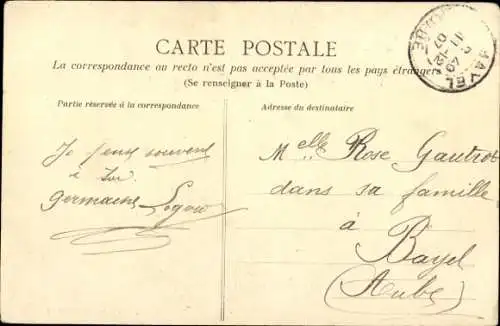 CARTE POSTALE
La correspondance au recto n'est pas acceptée par tous les pays étrangers
(Se renseigner à la Poste)
Partie réservée à la correspondance
Adresse du destinataire
BAYEL
AUBE
11 -12
07
Je pense souvent
à toi
Germaine
Melle Rose Gautrot
dans sa famille
à
Bayel
(Aube)